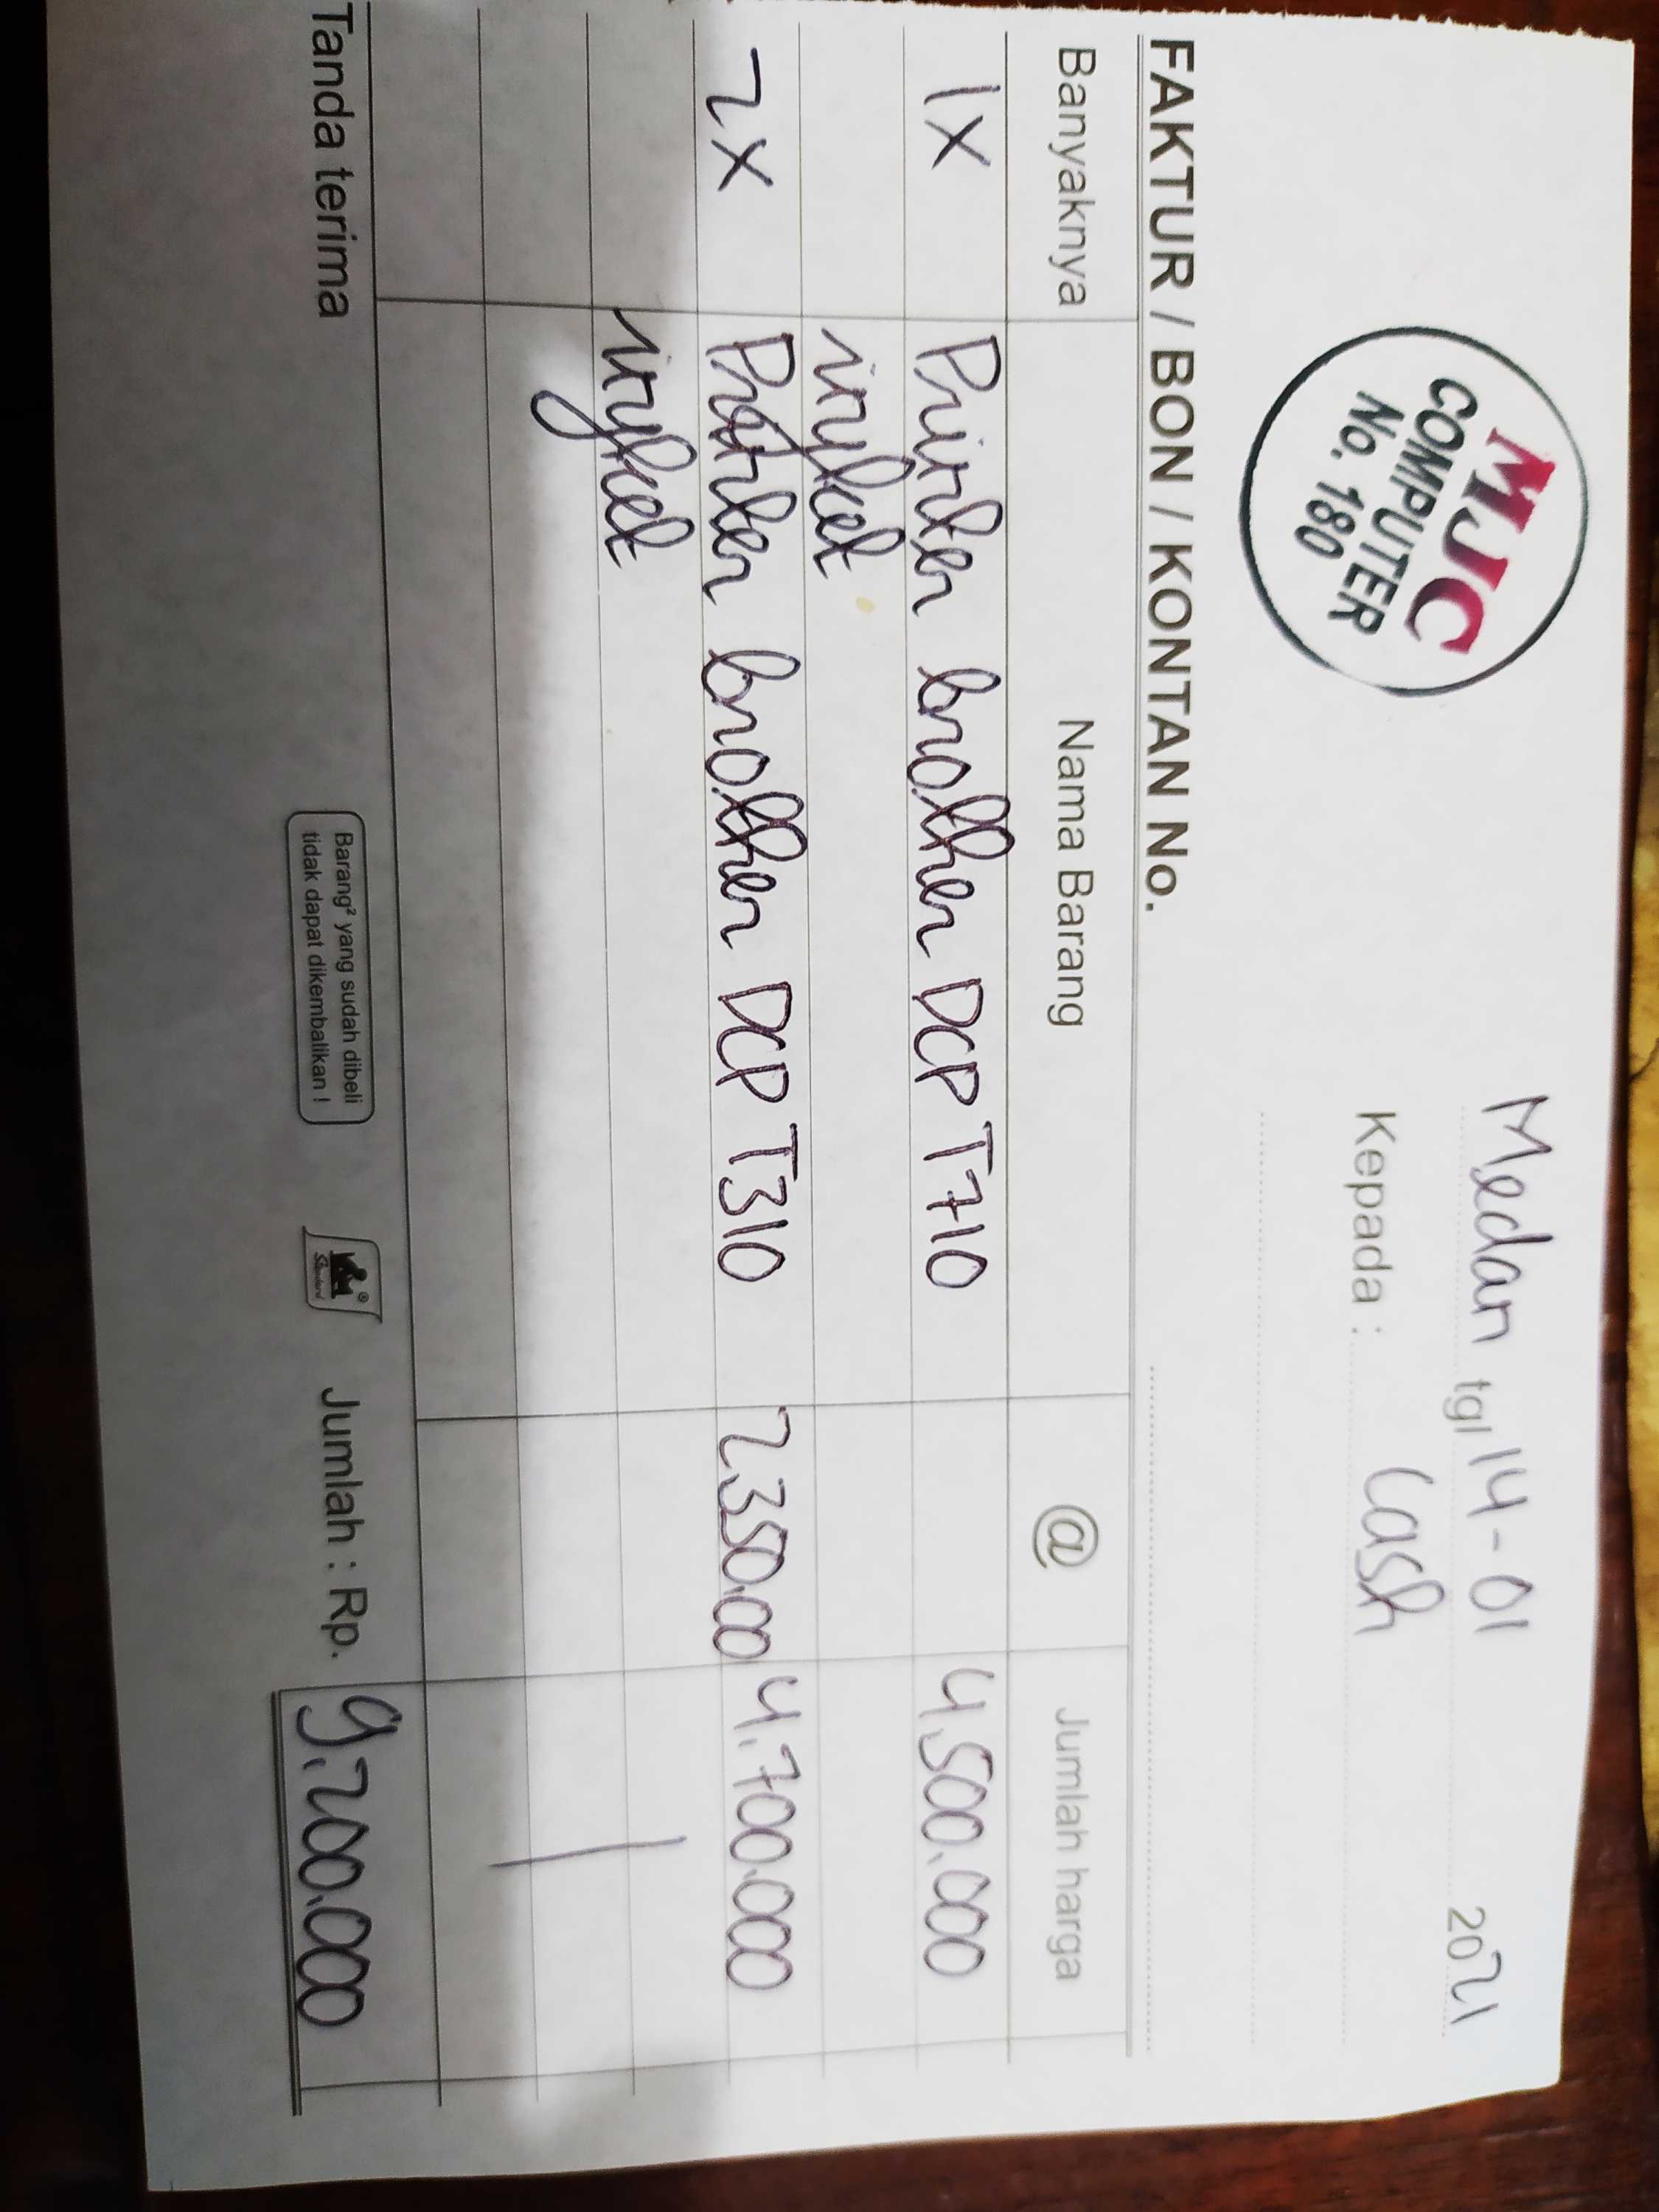 MJC
COMPUTER
No. 180
Medan tgl, 14-01 2021
Kepada : Cash
FAKTUR / BON / KONTAN No.
Banyaknya Nama Barang @ Jumlah harga
1X Printer brother DCP T710 4.500.000
inkjet
2X Printer brother DCP T310 2.350.00 4.700.000
inkjet
Tanda terima
Barang² yang sudah dibeli
tidak dapat dikembalikan !
Jumlah : Rp. 9.200.000